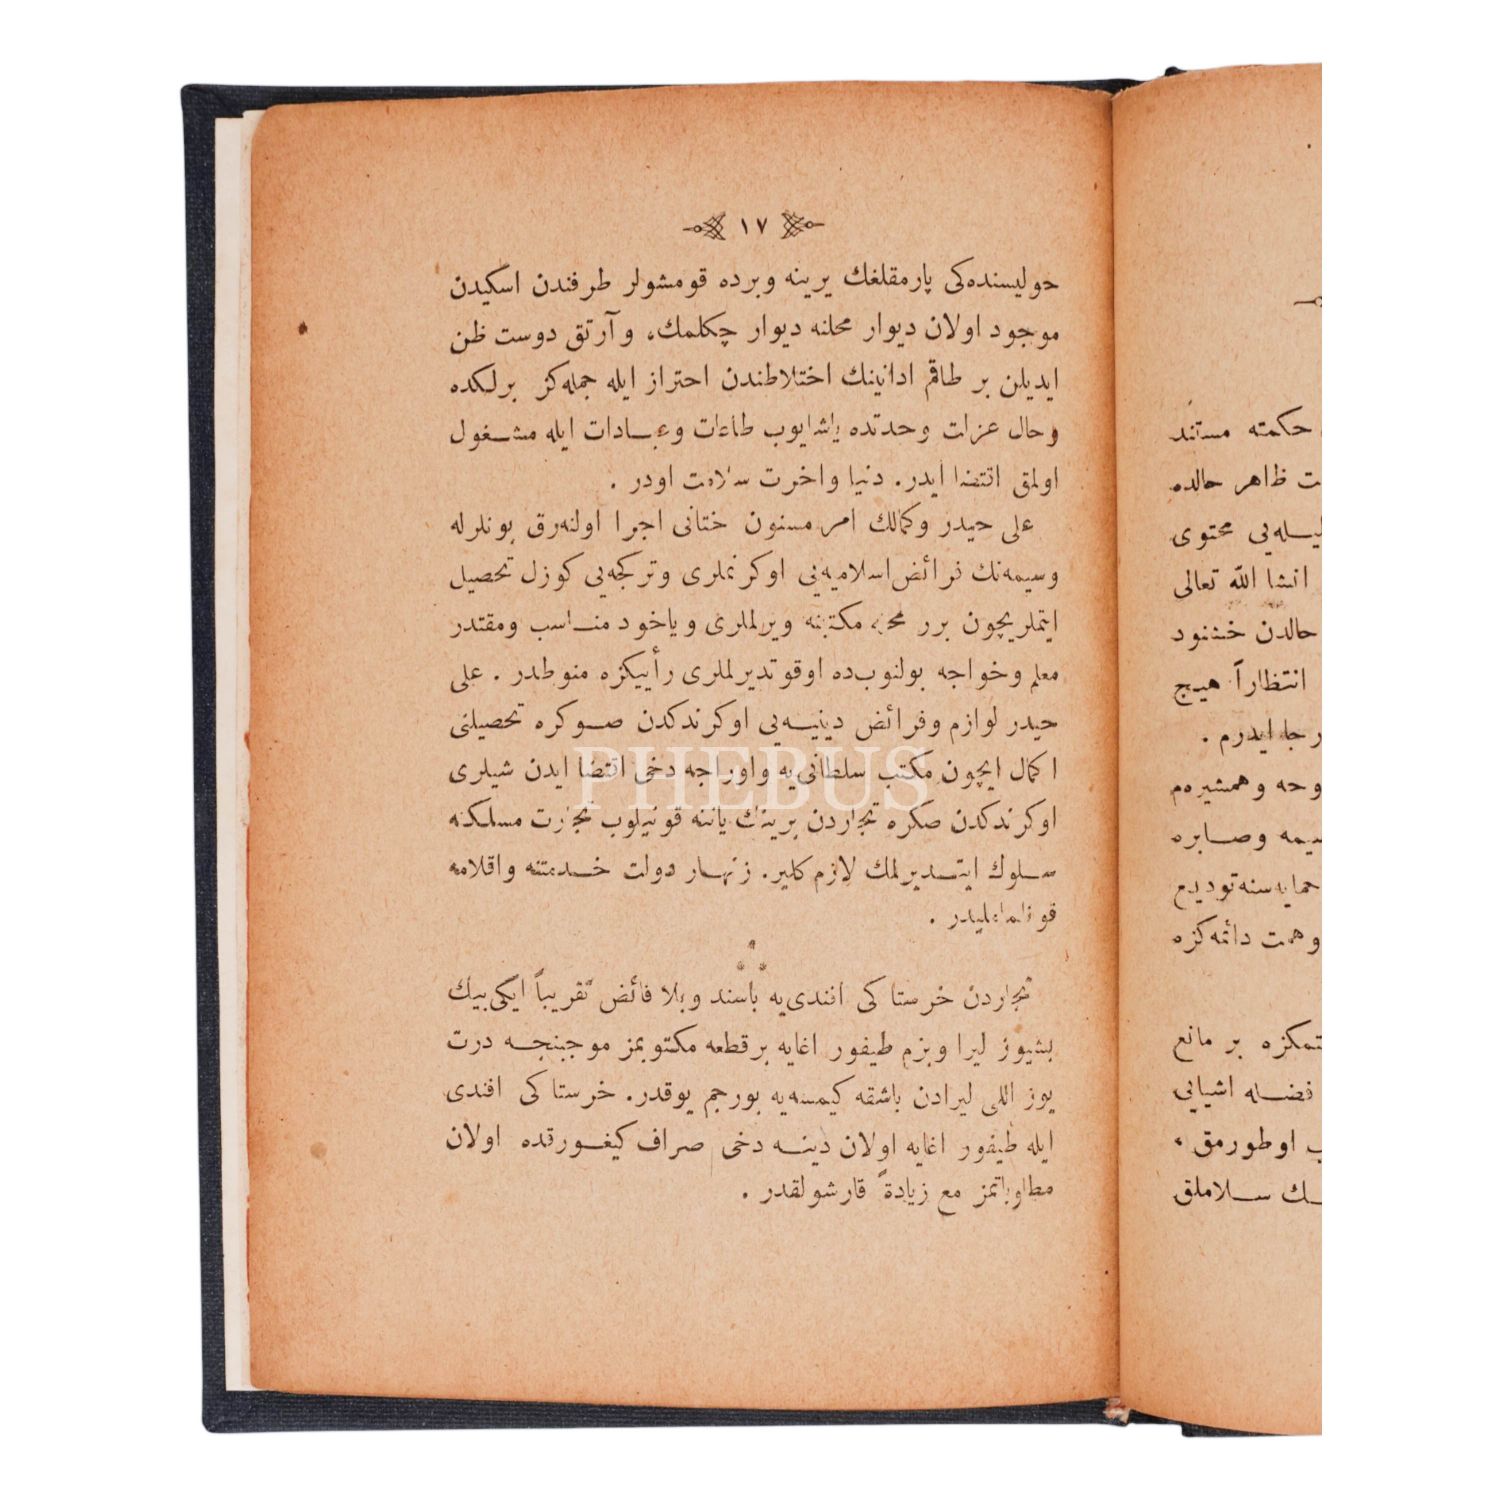 ١٧
حوليسنده‌كى پارمقلغك يرينه وبرده قومشولر طرفندن اسكيدن
موجود اولان ديوار محلنه ديوار چكلمك، وآرتق دوست ظن
ايديلن بر طاقم ادانينك اختلاطندن احتراز ايله جمله‌كز برلكده
وحال عزلت وحدتده ياشايوب طاعات وعبادات ايله مشغول
اولمق اقتضا ايدر. دنيا واخرت سلامت اودر .
على حيدر وكمالك امر مسنون ختانى اجرا اولنه‌رق بونلرله
وسيمه‌نك فرائض اسلاميه‌يى اوكرنملرى وتركجه‌يى كوزل تحصيل
ايتملريچون برر محله مكتبنه ويرلملرى وياخود مناسب ومقتدر
معلم وخواجه بولنوب‌ده اوقوتديرلملرى رأييكزه منوطدر . على
حيدر لوازم وفرائض دينيه‌يى اوكرندكدن صوكره تحصيلنى
اكمال ايچون مكتب سلطانى‌يه واوراجه دخى اقتضا ايدن شيلرى
اوكرندكدن صكره تجاردن برينك ياننه قونيلوب تجارت مسلكنه
سلوك ايتديرلمك لازم كلير. زنهار دولت خدمتنه واقلامه
قونلماملیدر .
تجاردن خرستاكى افندى‌يه باسند وبلا فائض تقريباً ايكى بيك
بشيوز ليرا وبزم طيفور اغايه برقطعه مكتوبمز موجبنجه درت
يوز اللى ليرادن باشقه كيمسه‌يه بورجم يوقدر. خرستاكى افندى
ايله طيفور اغايه اولان دينه دخى صراف كيغورقده اولان
مطلوباتمز مع زيادة قارشولقدر .
حكمته مستند
ظاهر حالده
محتوى
انشا الله تعالى
حالدن خشنود
انتظاراً هيچ
رجا ايدرم .
وهمشيره‌م
وصابره
حمايه‌سنه توديع
وهمت دائمه‌كزه
بر مانع
فضله اشيايى
اوطورمق ،
سلاملق
PHEBUS